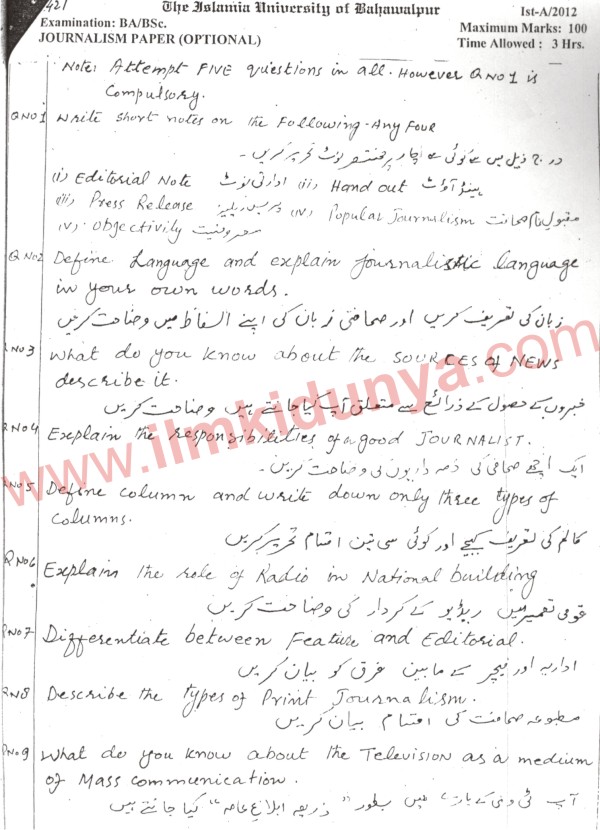 421
The Islamia University of Bahawalpur
Ist-A/2012
Examination: BA/BSc.
Maximum Marks: 100
JOURNALISM PAPER (OPTIONAL)
Time Allowed : 3 Hrs.
Note: Attempt FIVE questions in all. However Q NO 1 is
Compulsory.
Q NO 1 Write short notes on the Following - Any Four
درج ذیل میں سے کوئی سے چار پر مختصر نوٹ تحریر کریں۔
(i) Editorial Note ادارتی نوٹ (ii) Hand out ہینڈ آؤٹ
(iii) Press Release پریس ریلیز (iv) Popular Journalism مقبول عام صحافت
(v) Objectivity معروضیت
Q NO2 Define Language and explain journalistic language
in your own words.
زبان کی تعریف کریں اور صحافتی زبان کی اپنے الفاظ میں وضاحت کریں
Q NO3 What do you know about the SOURCES OF NEWS
describe it.
خبروں کے حصول کے ذرائع سے متعلق آپ کیا جانتے ہیں وضاحت کریں
Q NO4 Explain the responsibilities of a good JOURNALIST.
ایک اچھے صحافی کی ذمہ داریوں کی وضاحت کریں۔
Q NO5 Define column and write down only three types of
columns.
کالم کی تعریف کیجیے اور کوئی سی تین اقسام تحریر کریں
Q NO6 Explain the role of Radio in National building
قومی تعمیر میں ریڈیو کے کردار کی وضاحت کریں
Q NO7 Differentiate between Feature and Editorial.
اداریہ اور فیچر کے مابین فرق کو بیان کریں
Q NO8 Describe the types of Print Journalism.
مطبوعہ صحافت کی اقسام بیان کریں
Q NO9 What do you know about the Television as a medium
of Mass communication.
آپ ٹی وی کے بارے میں بطور "ذریعہ ابلاغ عامہ" کیا جانتے ہیں
www.ilmkidunya.com